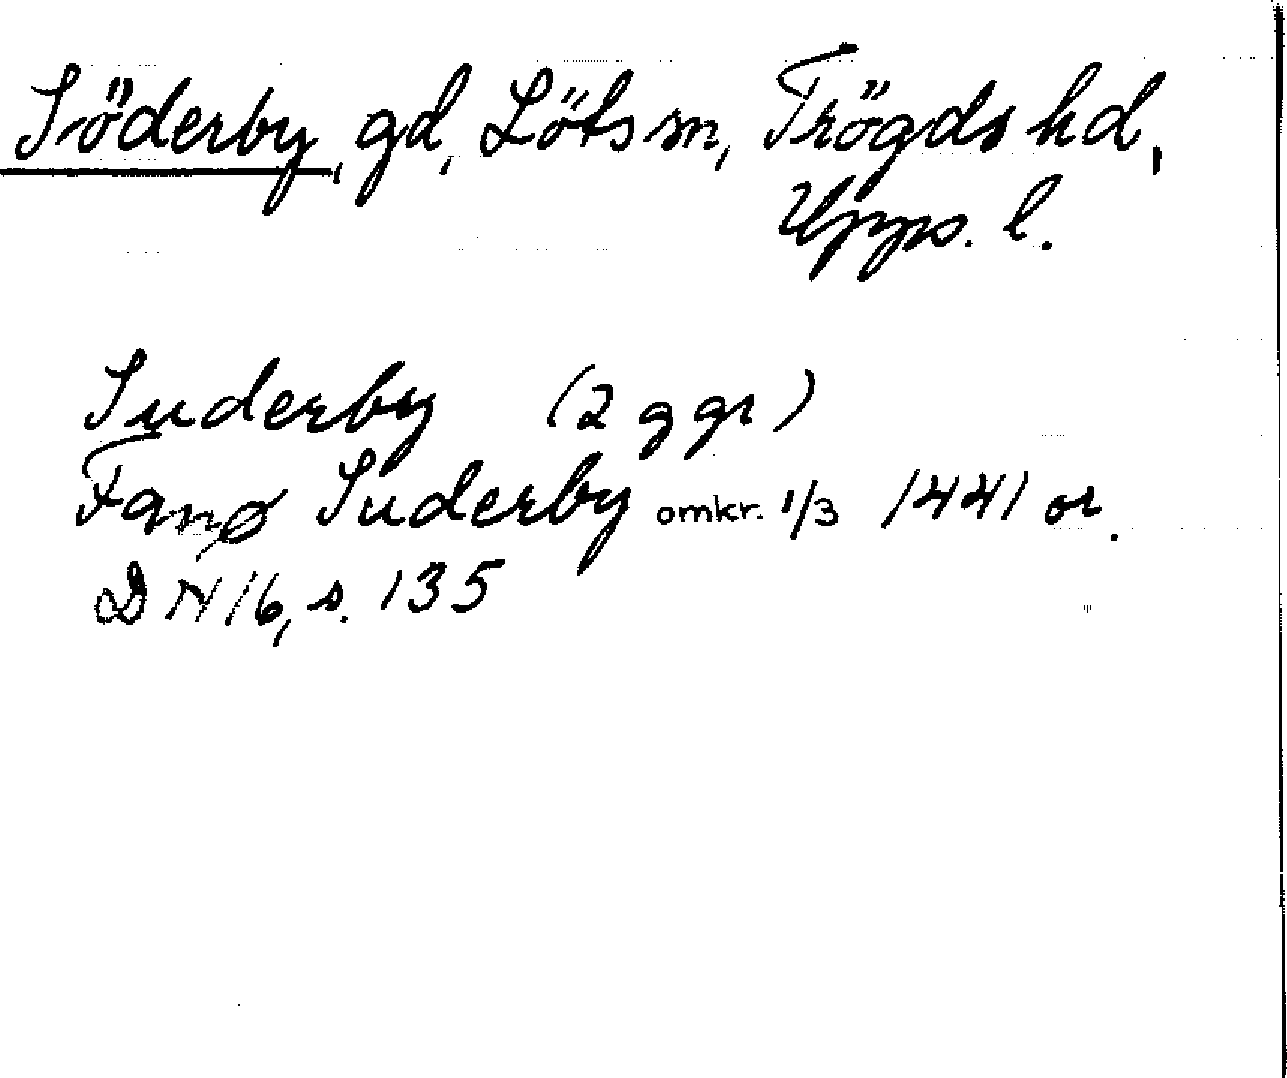 Söderby, gd, Löts sn, Trögds hd,
Upps. l.
Suderby (2 ggr)
Fanø Suderby omkr. 1/3 1441 or.
DN 16, s. 135